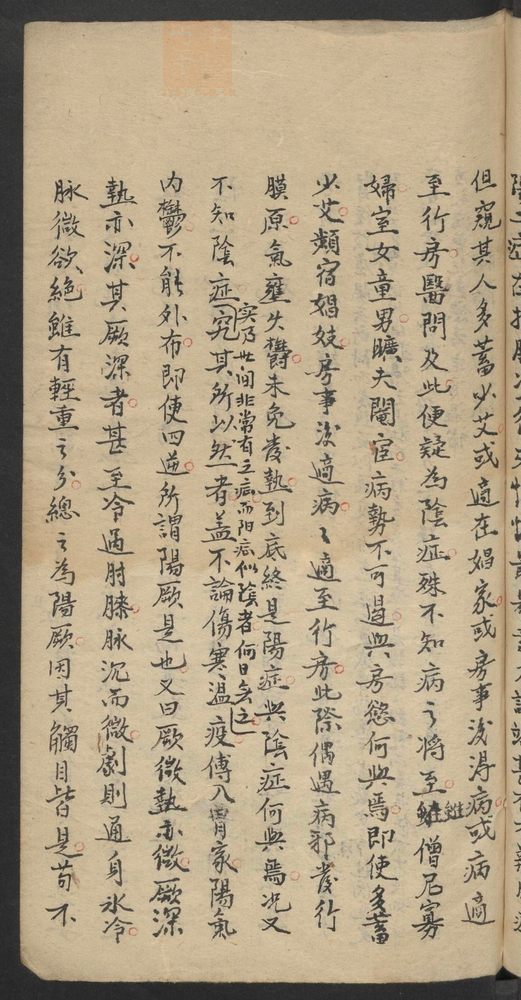 但窺其人多蓄少艾或適在娼家或房事後得病或病適
至行房醫問及此便疑為陰症殊不知病之將至雖僧尼寡
婦室女童男曠夫閹宦病勢不可遏與房慾何與焉即使多蓄
少艾頻宿娼妓房事後適病病適至行房此際偶遇病邪發行
膜原氣壅火欝未免發熱到底終是陽症與陰症何與焉况又
不知陰症实乃世间非常有之病而阳症似陰者何日無之究其所以然者盖不論傷寒温疫傳入胃家陽氣
内欝不能外布即使四逆所謂陽厥是也又曰厥微熱亦微厥深
熱亦深其厥深者甚至冷過肘膝脉沉而微劇則通身氷冷
脉微欲絶雖有輕重之分總之為陽厥因其觸目皆是苟不